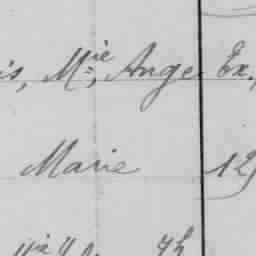 is, Mie, Ange Ex.
Marie 12